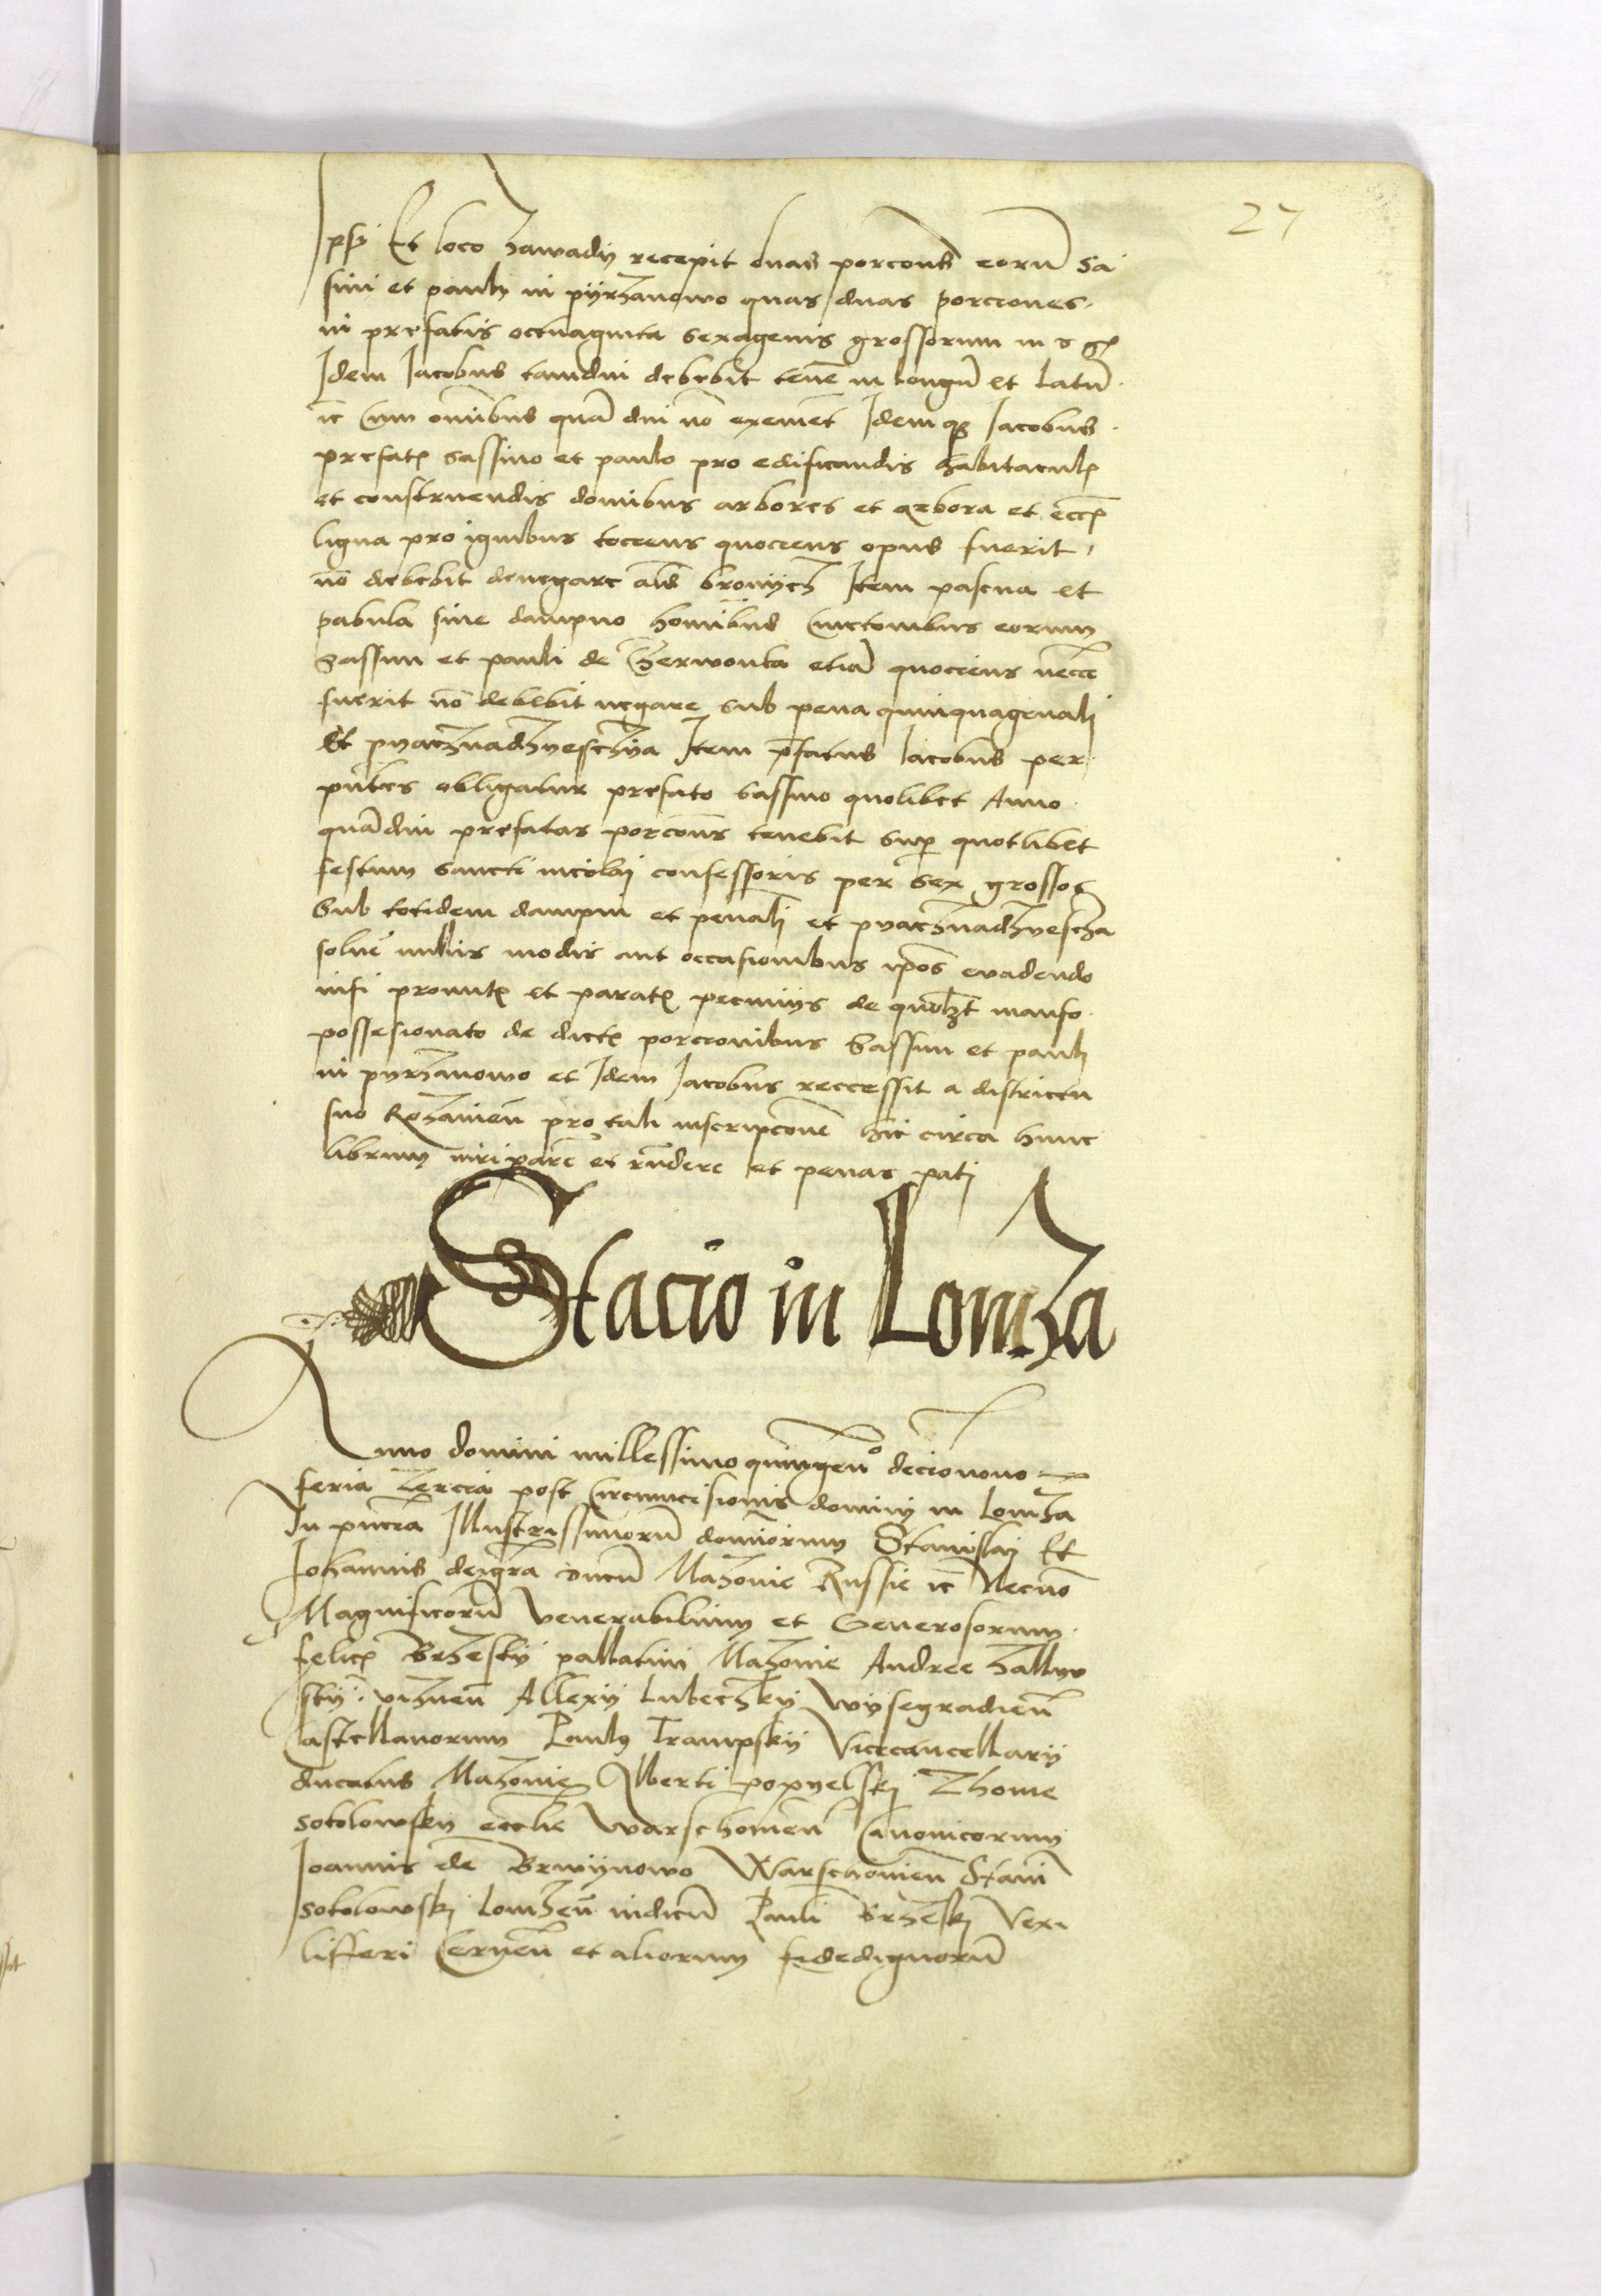 27
Ipsi Et loco Zawadij recepit duas porcoñs eorũ Sa
sini et pauli in pijrzanowo quas duas porciones
in prefatis octuaginta sexagenis grossorum in s g
Idem Jacobus tamdiu debebit teñe in longũ et latũ
ic cum oñibus quãdiu nõ exement Idemqz Jacobus
prefat Sassino et paulo pro edificandis habitacul
et construendis domibus arbores et robora et
ligna pro ignibus tociens quociens opus fuerit
nõ debebit denegare als bronijcz Item pascua et
pabula sine dampno hominibus Cmetonibus eorum
Sassini et pauli de Czerwonka etiã quociens necce
fuerit nõ debebit negare sub pena quinquagenali
Et pyacznadzyesczya Item pfatus Jacobus per
pñtes obligatur prefato Sassino quolibet Anno
quãdiu prefatas porcoñs tenebit sup quotlibet
festum sancti nicolaj confessoris per sex grossos
Sub totidem dampni et penali et pyacznadzyescza
solue nullis modis aut occasionibus ipos evadendo
nisi promt et parat pecunijs de quolzt manso
possesionato de dict porcionibus Sassini et pauli
in pyrzanowo et Idem Jacobus reccessit a districtu
suo Rozanieñ pro tali inscripcone hic circa hunc
librum iuri parẽ et rñdere et penas pati
Stacio in Lomza
Anno domini millessimo quingenº decionono
feria Tercia post Circumcisionis domini in Lomza
In pñcia Illustrissimorũ dominorum Stanislai Et
Johannis dei gra ducũ Mazovie Russie ic Necnõ
Magnificorũ Venerabilium et Generosorum
felic Brzeskij pallatini Mazovie Andree Zalljw
skij viznen Allexij Lubeczkij wijsegradieñ
Castellanorum Pauly Trampskij Vicecancellarij
ducatus Mazovie Alberti popyelskj Thome
Sokolowskij ecclie Warschovieñ Canonicorum
Joannis de Brwijnowo Warschovieñ Stani
Sokolowskj Lomzeñ iudicũ Pauli Brzeskj Vexi
lifferi Cerneñ et aliorum fidedignorũ